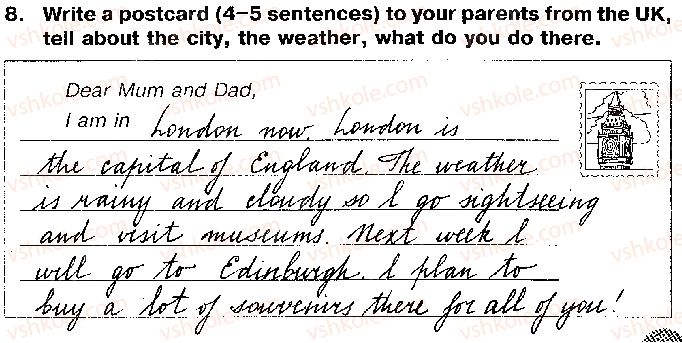 8. Write a postcard (4–5 sentences) to your parents from the UK,
tell about the city, the weather, what do you do there.
Dear Mum and Dad,
I am in London now. London is
the capital of England. The weather
is rainy and cloudy so I go sightseeing
and visit museums. Next week I
will go to Edinburgh. I plan to
buy a lot of souvenirs there for all of you!
vshkole.com